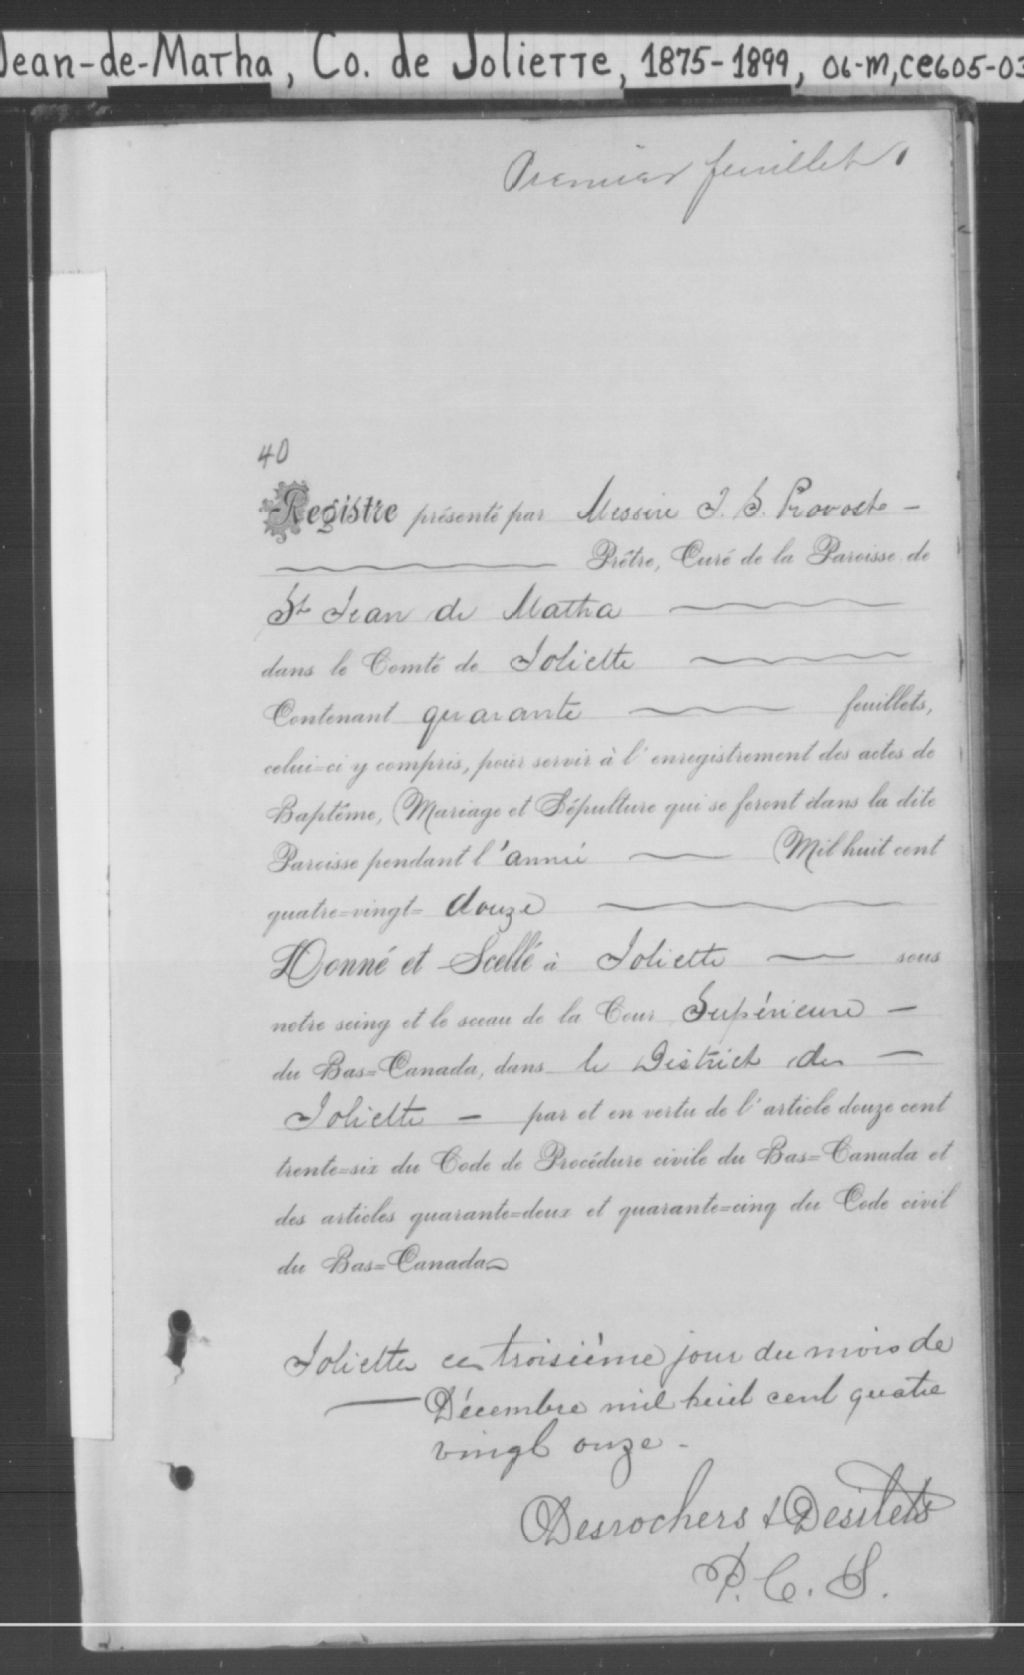 Jean-de-Matha, Co. de Joliette, 1875-1899, 06-M, CE605-03
Premier feuillet
40
Registre présenté par Messire T. S. Provost –
Prêtre, Curé de la Paroisse de
St Jean de Matha
dans le Comté de Joliette
Contenant quarante feuillets,
celui=ci y compris, pour servir à l'enregistrement des actes de
Baptême, Mariage et Sépulture qui se feront dans la dite
Paroisse pendant l'année Mil huit cent
quatre=vingt= douze
Donné et Scellé à Joliette — sous
notre seing et le sceau de la Cour Supérieure —
du Bas=Canada, dans le District de —
Joliette — par et en vertu de l'article douze cent
trente=six du Code de Procédure civile du Bas=Canada et
des articles quarante=deux et quarante=cinq du Code civil
du Bas=Canada
Joliette ce troisième jour du mois de
— Décembre mil huit cent quatre
vingt onze –
Desrochers & Desilets
P. C. S.